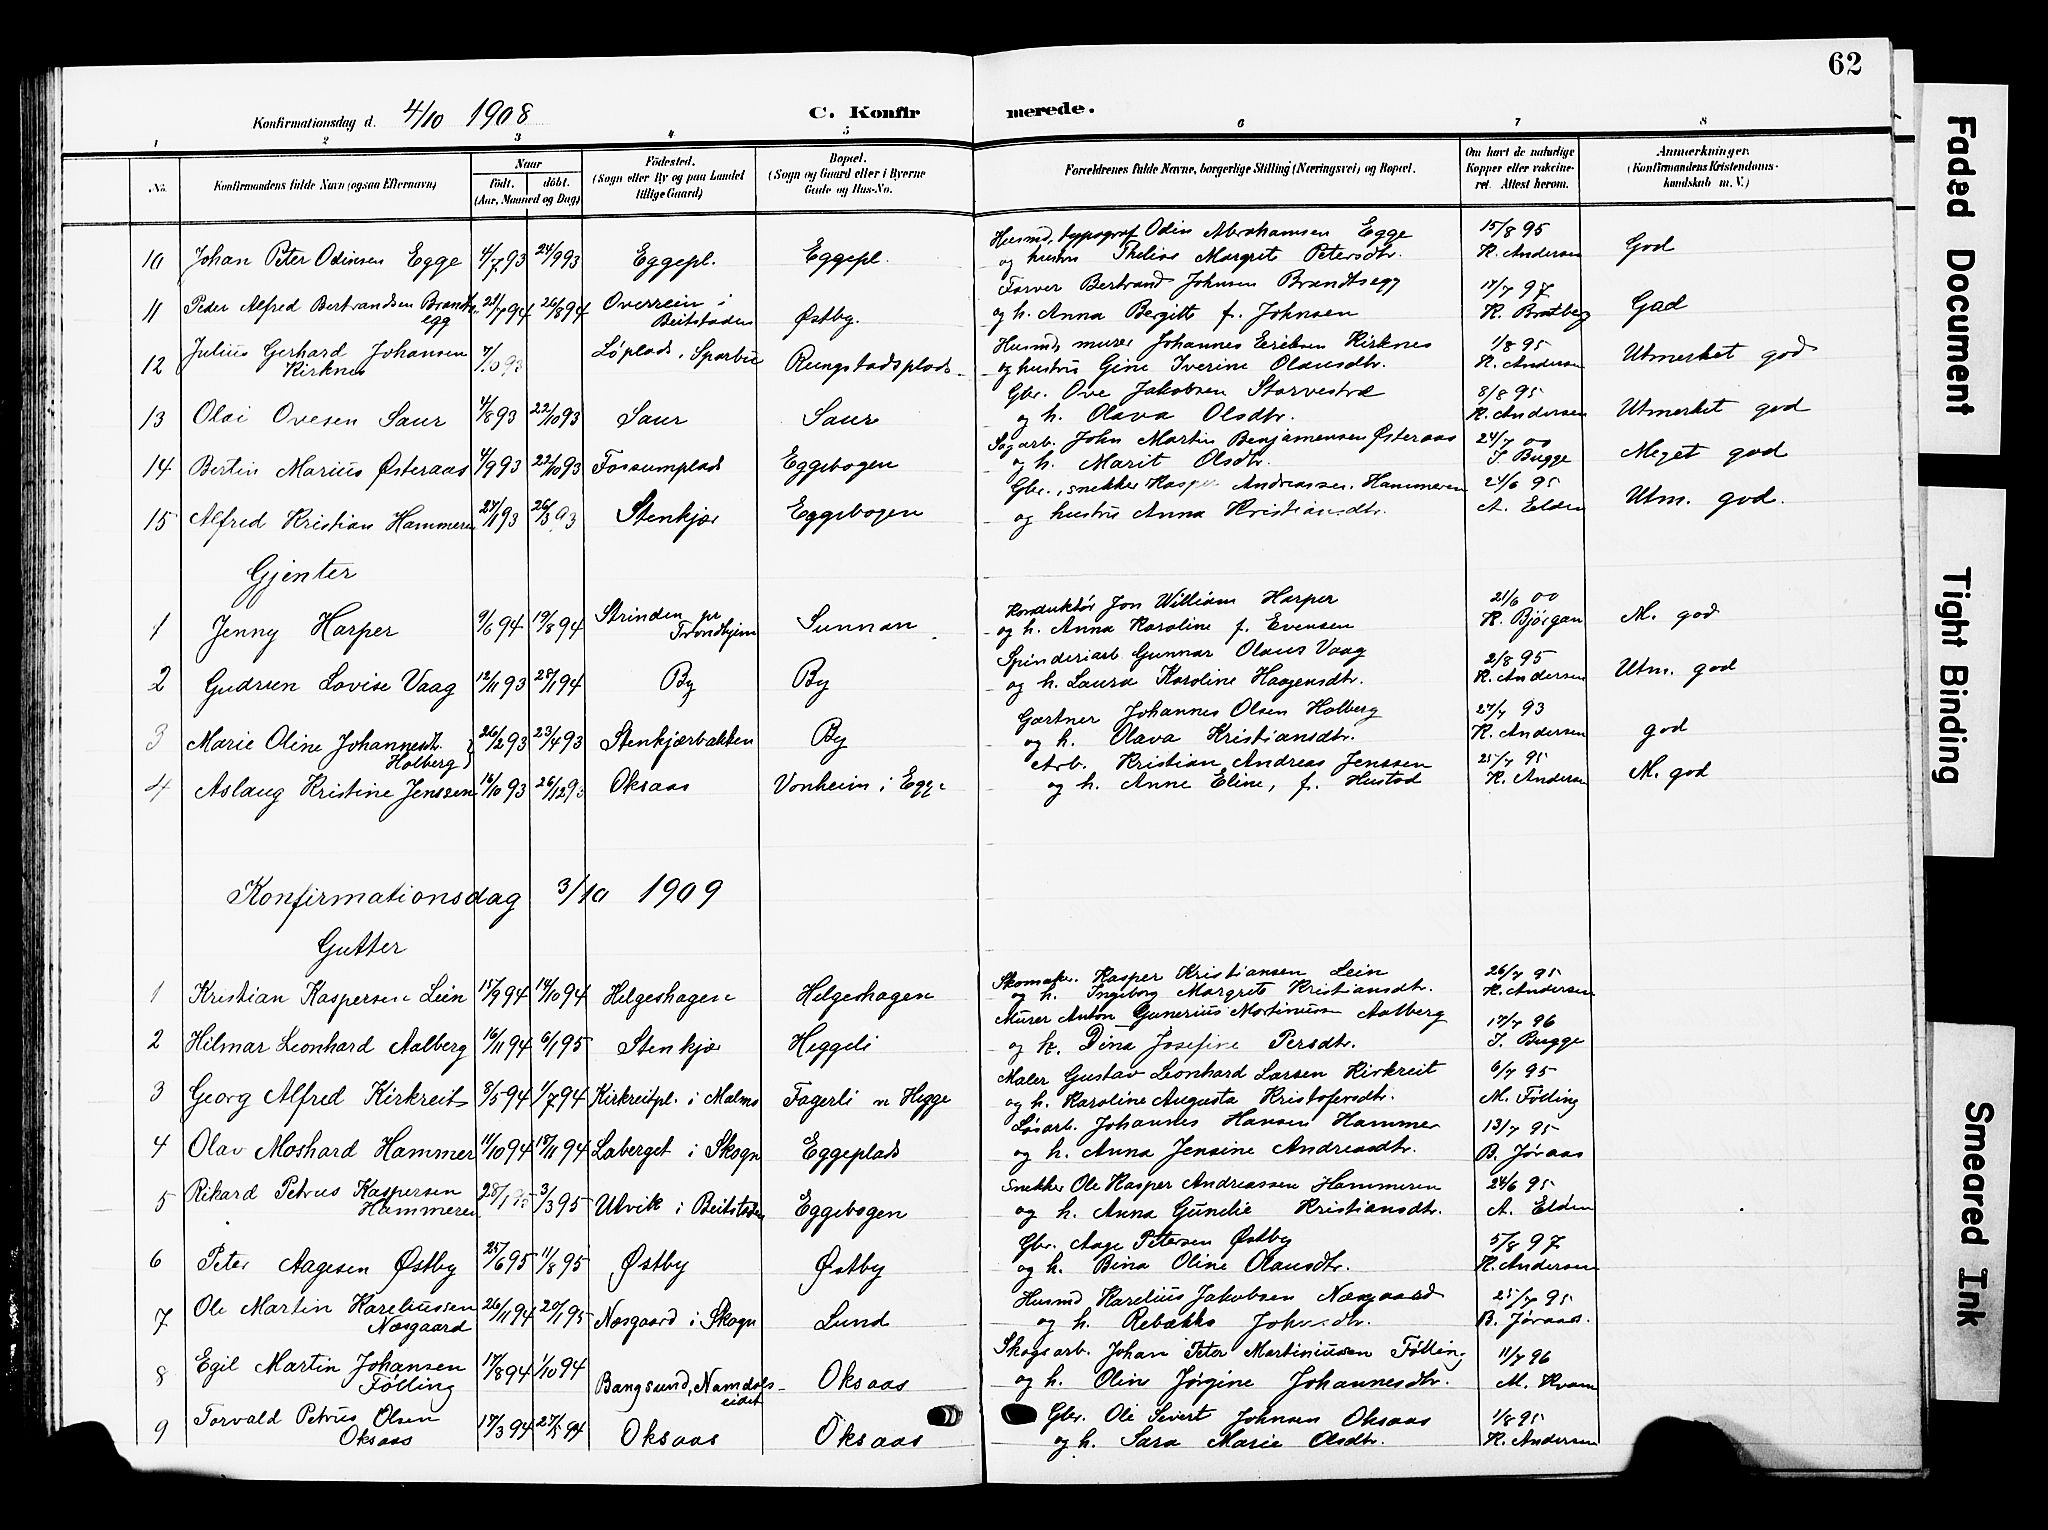 62
Konfirmationsdag d. 4/10 1908
C. Konfirmerede.
1 2 3 4 5 6 7 8
No.
Konfirmandens fulde Navn (ogsaa Efternavn)
Naar
født. døbt.
(Aar, Maaned og Dag)
Fødested.
(Sogn eller By og paa Landet
tillige Gaard)
Bopæl.
(Sogn og Gaard eller i Byerne
Gade og Hus-No.
Forældrenes fulde Navne, borgerlige Stilling (Næringsvei) og Bopæl.
Om havt de naturlige
Kopper eller vakcine-
ret. Attest herom.
Anmærkninger.
(Konfirmandens Kristendoms-
kundskab m. V.)
Husmd, typograf Odin Abrahamsen Egge 15/8 95
10 Johan Peter Odinsen Egge 4/7 93 24/9 93 Eggepl. Eggepl. og hustru Margrit Petersdtr. K. Andersen God
Farver Bertrand Johnsen Brandtsegg 17/7 97
11 Peder Alfred Bertrandsen Brandts- 26/8 94 Overrein i
egg Beitstaden Østby. og h. Anna Bergitte f. Johnsen K. Bratberg God
12 Julius Gerhard Johansen Løplads, Sparbu Husmd, murer Johannes Eriksen Kirknes 1/8 95
Kirknes Rungstadsplads og hustru Gine Iverine Olausdtr. K. Andersen Utmerket god
Gbr. Ove Jakobsen Storvestre 8/8 95
13 Olai Ovesen Saur 4/8 93 22/10 93 Saur Saur og h. Olava Olsdtr. K. Andersen Utmerket god
Sagarb. John Martin Benjaminsen Østeraas 24/7 00
14 Bertin Marius Østeraas 4/9 93 22/10 93 Fossumplads Eggebogen og h. Marit Olsdtr. I. Bugge Meget god
Gbr., snekker Kasper Andreassen Hammeren 24/6 95
15 Alfred Kristian Hammeren 26/3 93 Stenkjær Eggebogen og hustru Anna Kristiansdtr. A. Elden Utm. god.
Gjenter
Konduktør Jon William Harper 21/6 00
1 Jenny Harper 9/6 94 19/8 94 Strinden pr
Trondhjem Sunnan og h. Anna Karoline f. Evensen K. Bjørgan M. god
Spinderiarb. Gunnar Olaus Vaag 2/8 95
2 Gudrun Lovise Vaag 12/11 93 28/1 94 By By og h. Laura Karoline Haagensdtr. K. Andersen Utm. god
Gartner Johannes Olsen Holberg 27/7 93
3 Marie Oline Johannesdtr. 26/2 93 23/4 93 Stenkjærbakken By og h. Olava Kristiansdtr. K. Andersen god
Holberg
Arb. Kristian Andreas Jenssen 25/7 95
4 Aslaug Kristine Jenssen 16/10 93 26/12 93 Oksaas Vonheim i Egge og h. Anne Eline, f. Hustad K. Andersen M. god
Konfirmationsdag 3/10 1909
Gutter
Skomaker Kasper Kristiansen Lein 26/7 95
1 Kristian Kaspersen Lein 15/9 94 14/10 94 Helgeshagen Helgeshagen og h. Ingeborg Margrete Kristiansdtr. K. Andersen
Murer Anton Gunerius Martinussen Aalberg 17/7 96
2 Hilmar Leonhard Aalberg 16/11 94 6/1 95 Stenkjær Heggeli og h. Dina Josefine Persdtr. I. Bugge
Maler Gustav Leonhard Larsen Kirkreit 6/7 95
3 Georg Alfred Kirkreit 8/5 94 1/7 94 Kirkreitpl. i Malmo Fagerli n Hegge og h. Karoline Augusta Kristofersdtr. M. Følling
Løsarb. Johannes Hansen Hammer 13/7 95
4 Olav Moshard Hammer 11/10 94 18/11 94 Laberget i Skogn Eggeplads og h. Anna Jensine Andreasdtr. B. Jøraas
5 Rikard Petrus Kaspersen Snekker Ole Kasper Andreassen Hammeren 24/6 95
Hammeren 28/1 95 3/3 95 Utvik i Beitstaden Eggebogen og h. Anna Gunelie Kristiansdtr. A. Elden
Gbr. Aage Petersen Østby 5/8 97
6 Peter Aagesen Østby 25/6 95 11/8 95 Østby Østby og h. Bina Oline Olausdtr. K. Andersen
7 Ole Martin Kareliussen 26/11 94 20/1 95 Husmd Karelius Jakobsen Næsgaard 25/7 95
Næsgaard Næsgaard i Skogn Lund og h. Rebækka Johnsdtr. B. Jøraas.
8 Egil Martin Johansen 17/8 94 1/10 94 Skogsarb. Johan Peter Martiniussen Følling 11/7 96
Følling Bangsund, Namdals-
eidet Oksaas og h. Oline Jørgine Johannesdtr. M. Kvam
9 Torvald Petrus Olsen Gbr. Ole Sivert Johnsen Oksaas 1/8 95
Oksaas 17/3 94 27/5 94 Oksaas Oksaas og h. Sara Marie Olsdtr. K. Andersen
Faded Document
Tight Binding
Smeared Ink